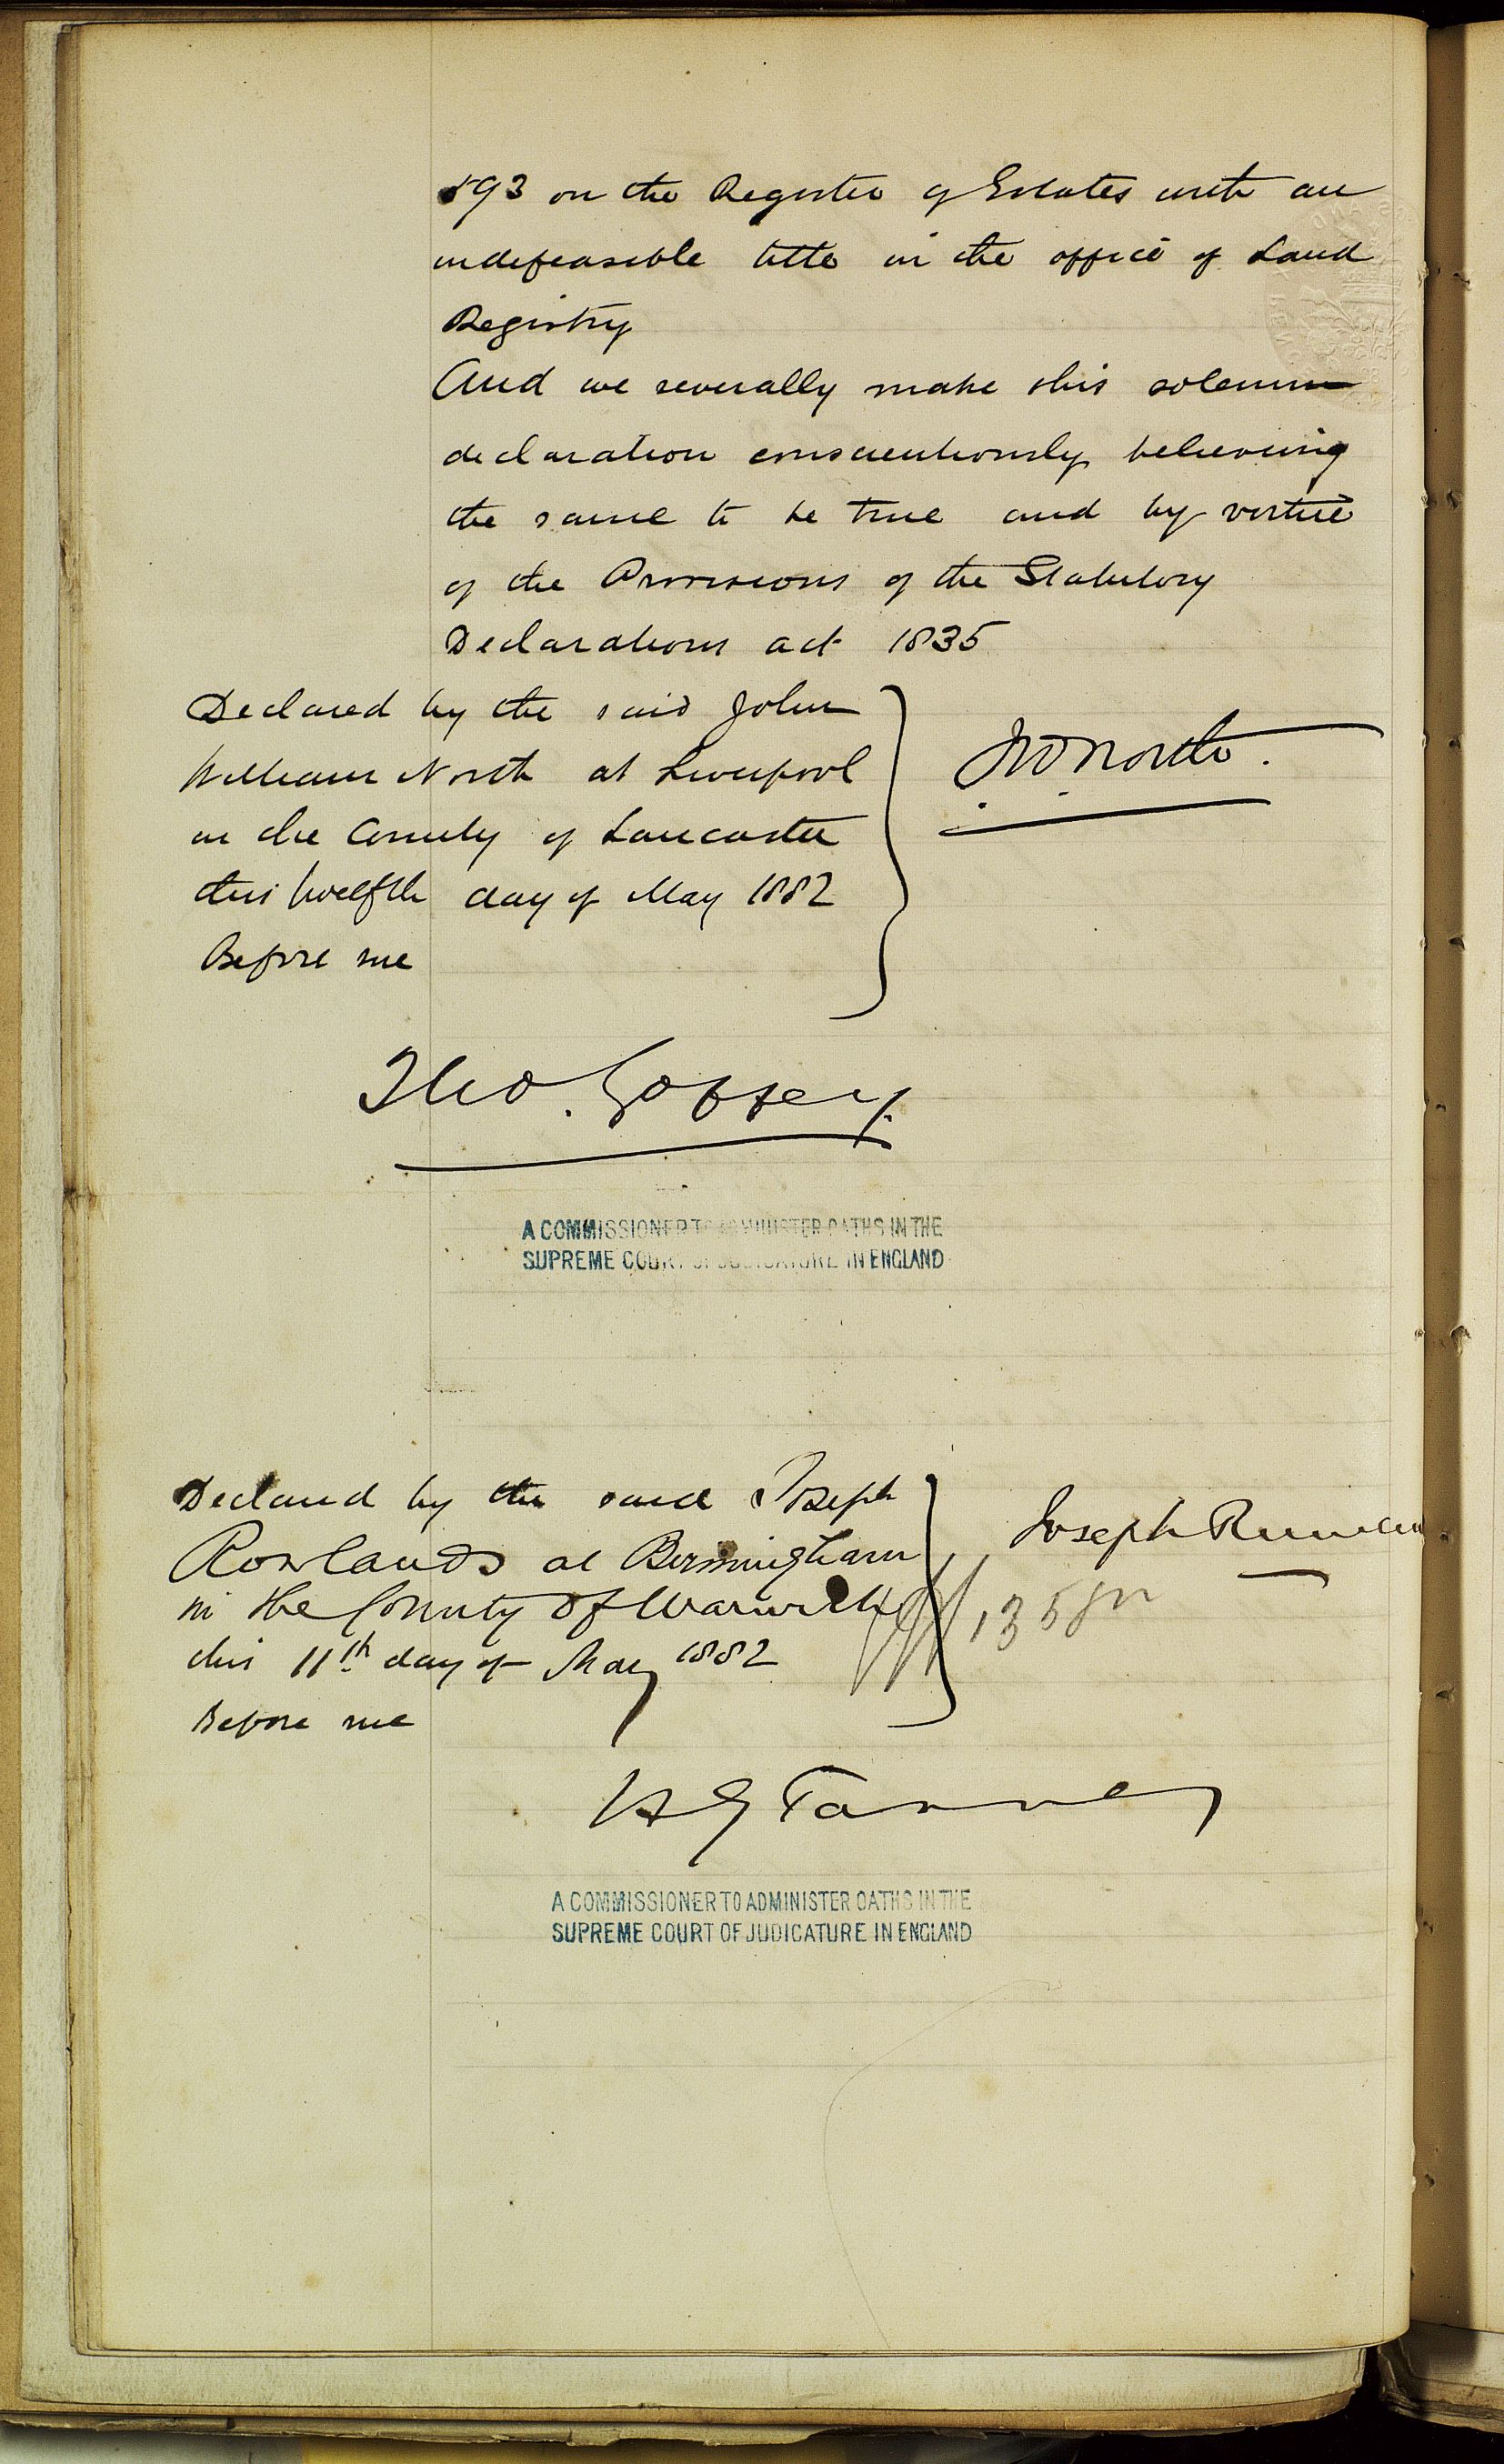 893 on the Register of Estates with an
indefeasible title in the office of Land
Registry
And we severally make this solemn
declaration conscientiously believing
the same to be true and by virtue
of the Provisions of the Statutory
Declarations act 1835
Declared by the said John
William North at Liverpool
in the County of Lancaster
this twelfth day of May 1882
Before me
JW North.
Tho.
A COMMISSIONER TO ADMINISTER OATHS IN THE
SUPREME COURT OF JUDICATURE IN ENGLAND
Declared by the said Joseph
Rowlands at Birmingham
in the County of Warwick
this 11th day of May 1882
Before me
Joseph
Tanner
A COMMISSIONER TO ADMINISTER OATHS IN THE
SUPREME COURT OF JUDICATURE IN ENGLAND